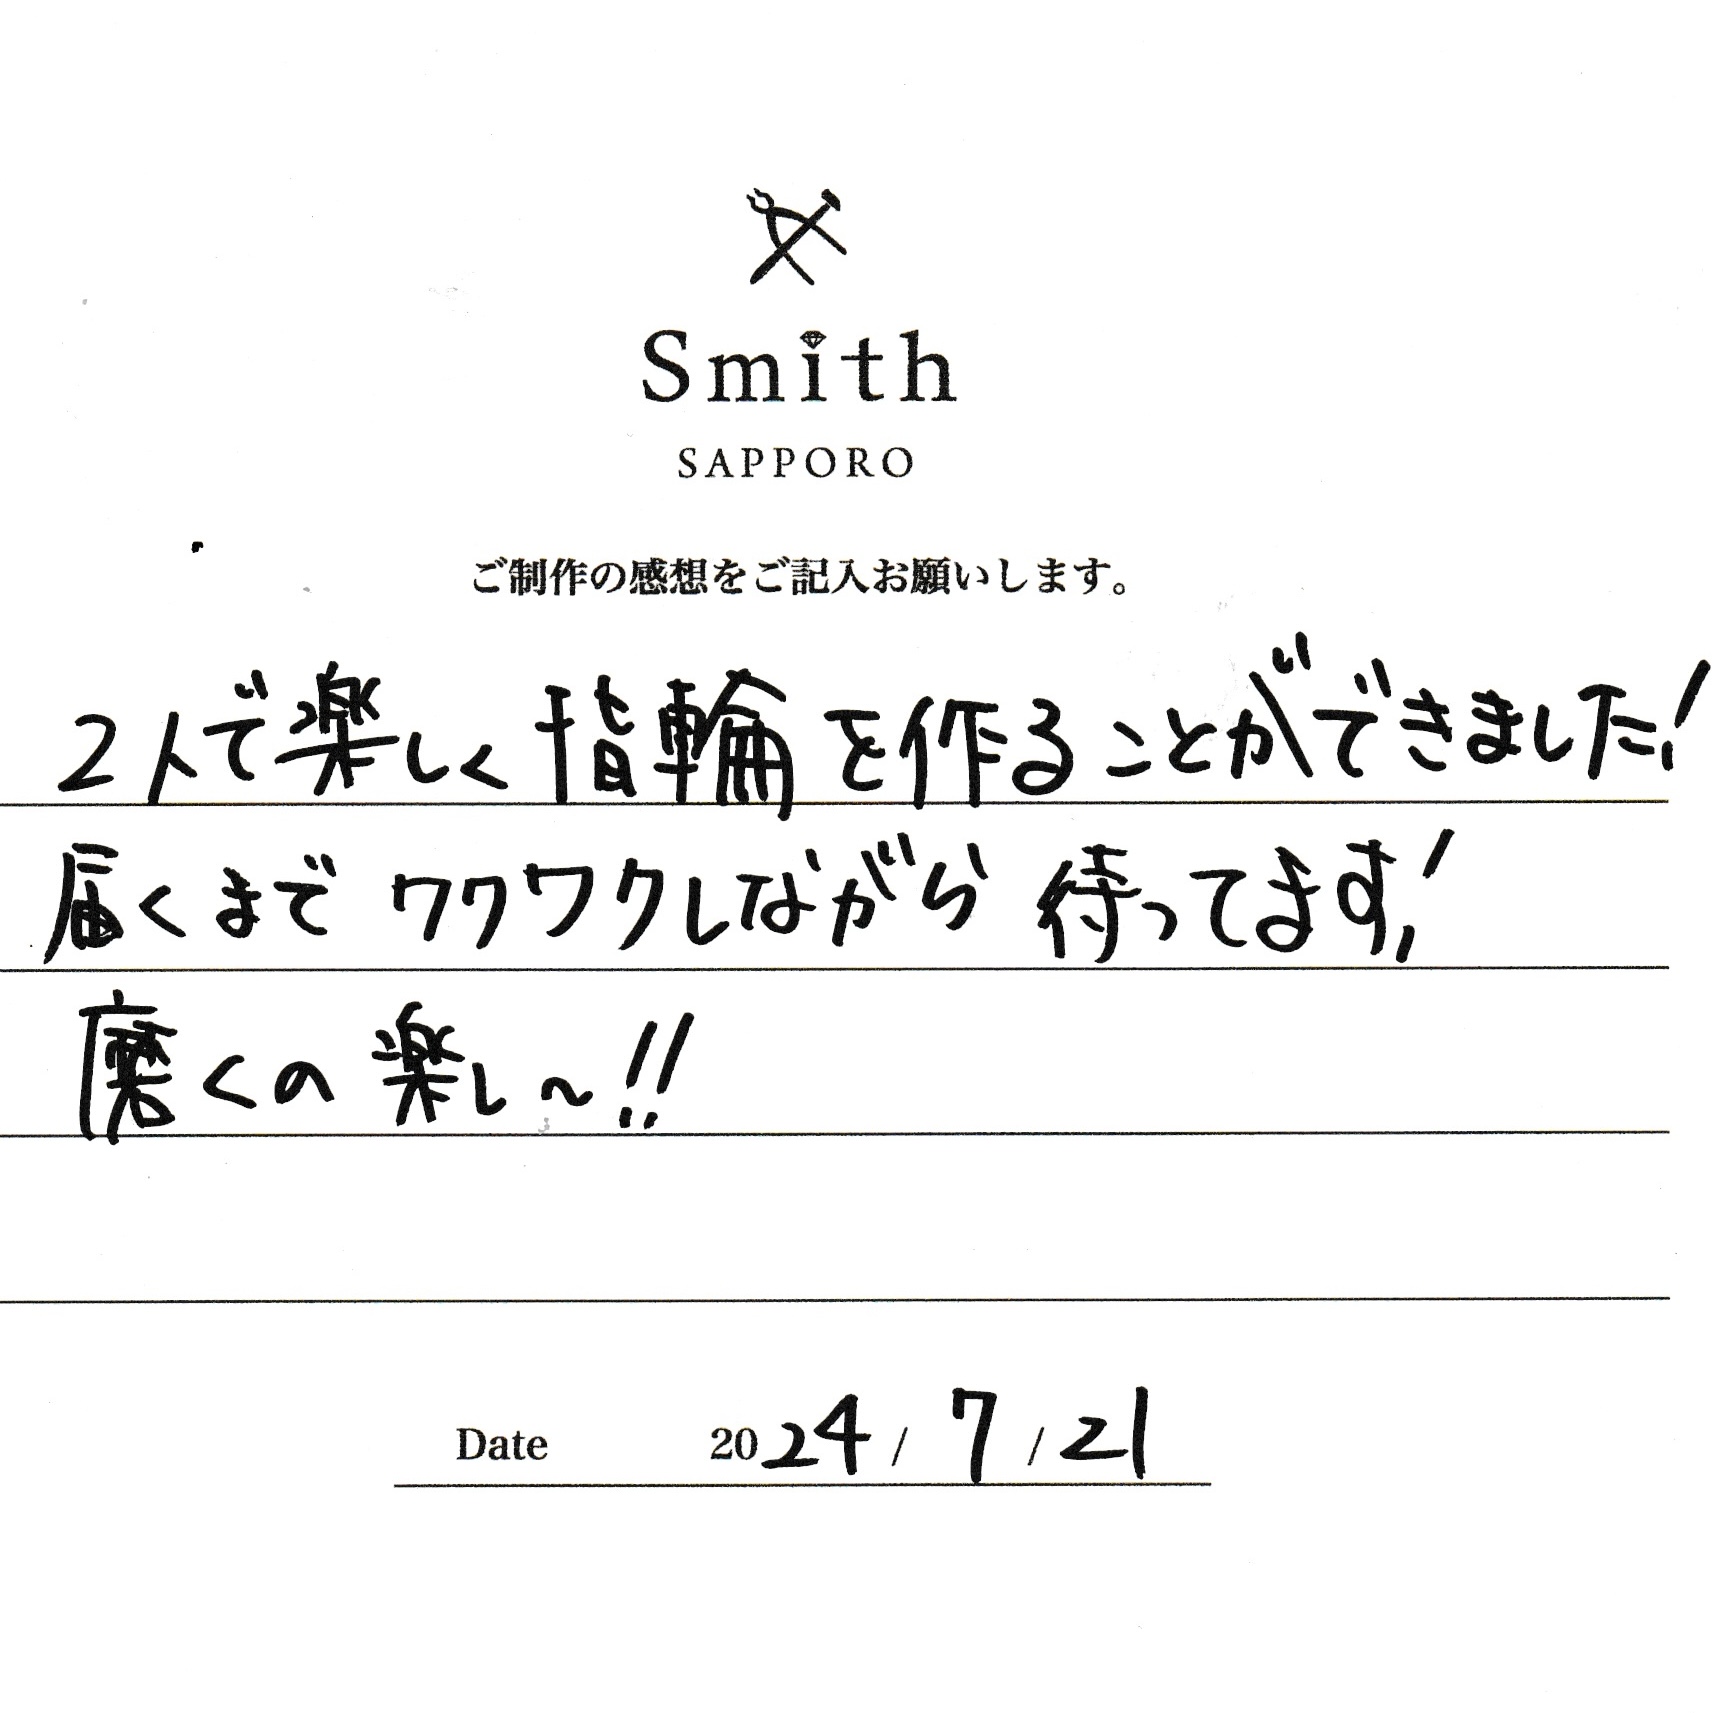 Smith
SAPPORO
ご制作の感想をご記入お願いします。
2人で楽しく指輪を作ることができました!
届くまでワクワクしながら待ってます!
磨くの楽し〜!!
Date 2024/7/21